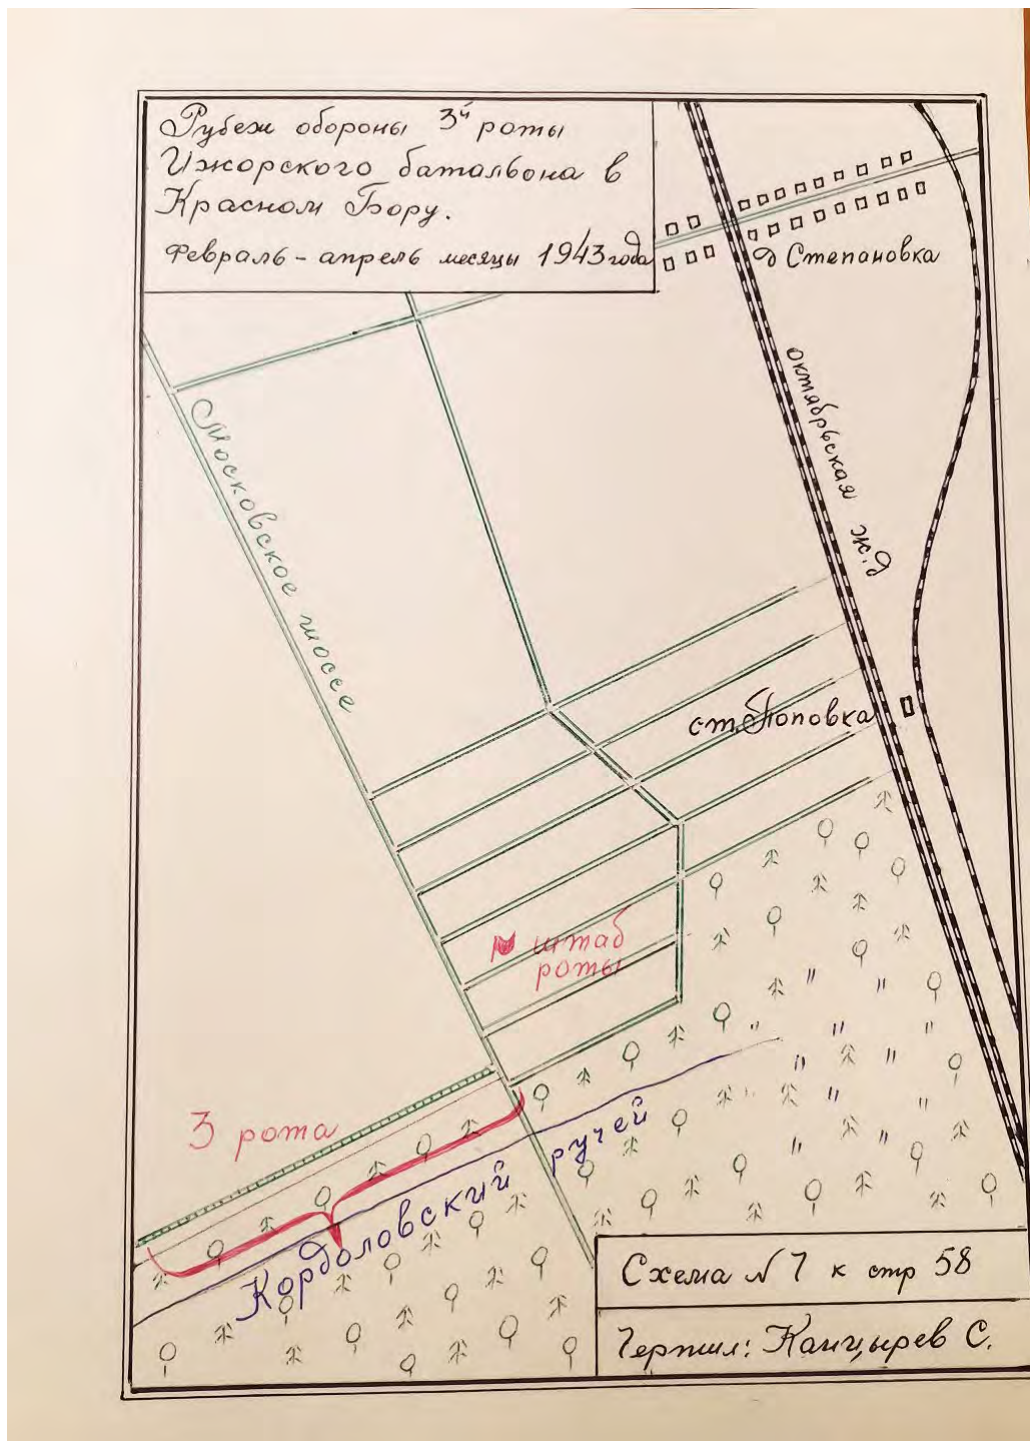 Рубеж обороны 3й роты
Ижорского баталвона в
Красном Бору.
Февраль - апрель месяцы 1943 года
д Степановка
октябрьская ж.д
Московское шоссе
ст. Поповка
штаб
роты
3 рота
Кордоловский ручей
Схема № 7 к стр 58
Чертил: Канцырев С.